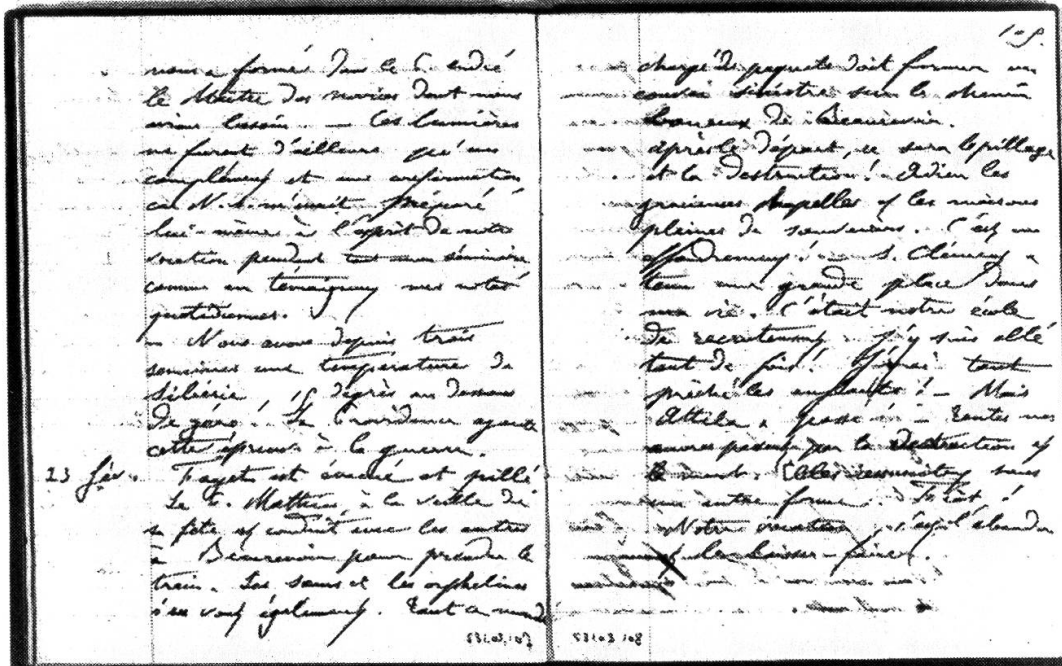 nous a formés dans le P. André
le Maître des novices dont nous
avions besoin. — Ces lumières
ne furent d'ailleurs qu'un
complément et une confirmation
car N.S. m'avait préparé
lui-même à l'esprit de notre
vocation pendant tout mon séminaire
comme en témoignent mes notes
quotidiennes.
— Nous avons depuis trois
semaines une température de
Sibérie, 15 degrés au dessous
de zéro. La Providence ajoute
cette épreuve à la guerre.
23 fév. Fayet est évacué et pillé
Le P. Mathias, à la veille de
sa fête est conduit avec les autres
à Beaurevoir pour prendre le
train. Les sœurs et les orphelines
s'en vont également. Tout ce monde
53103.107
109.
chargé de paquets doit former un
convoi sinistre sur le chemin
boueux de Beaurevoir.
Après le départ, ce sera le pillage
et la destruction! Adieu les
gracieuses chapelles et les maisons
pleines de souvenirs. C'est un
effondrement! — S. Clément a
tenu une grande place dans
ma vie. C'était notre école
de recrutement. J'y suis allé
tant de fois! J'y ai tant
prêché les enfants! — Mais
Attila a passé! — Toutes nos
œuvres passent par la destruction et
la mort. Elles ressuscitent sous
une autre forme. Fiat!
Notre vocation, c'est l'abandon
le laisser-faire.
53103.108